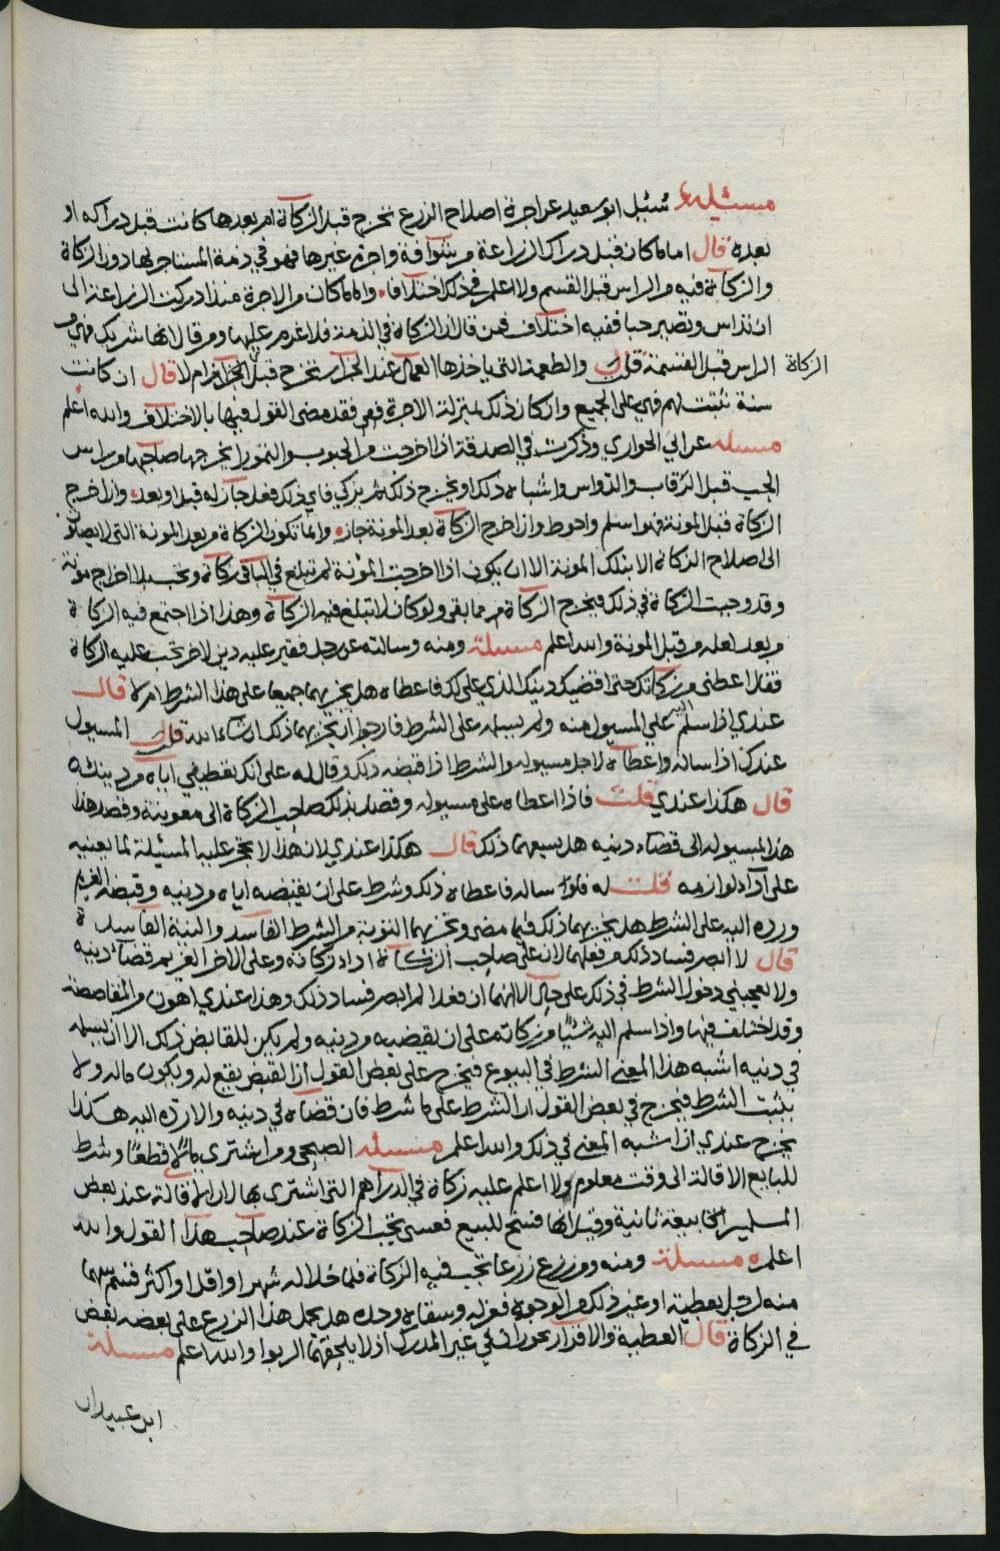 مسئلة سئل ابو سعيد عن اجرة اصلاح الزرع تخرج قبل الزكاة ام بعدها كانت قبل دراكه او
بعده قال اما ما كان قبل دراك الزراعة من شوافة واجرة غيرها فهو في ذمة المستاجر لها دون الزكاة
والزكاة فيه من الراس قبل القسم ولا اعلم في ذلك اختلافا واما ما كان من الاجرة منذ ادركت الزراعة الى
ان تداس وتصير حبا ففيه اختلاف فمن قال ان الزكاة في الذمة فلا غرم عليها ومن قال انها شريك فهي من
الراس قبل القسمة قلت والطعمة التي ياخذها العمال عند الجزاز تخرج قبل الجزاز ام لا قال ان كانت
الزكاة
سنة تثبت لهم فهي على الجميع وان كان ذلك بمنزلة الاجرة فهي فقد مضى القول فيها بالاختلاف والله اعلم
مسئلة عن ابي الحواري وذكرت في الصدقة اذا اخرجت من الحبوب والتمور ايخرجها صاحبها من راس
الحب قبل الرقاب والدواس واشباه ذلك او يخرج ذلك ثم يزكي فاي ذلك فعل جاز له قبل او بعد وان اخرج
الزكاة قبل المونة فهو اسلم واحوط وان اخرج الزكاة بعد المونة جاز وانما تكون الزكاة من بعد المونة التي لا يصلون
الى اصلاح الزكاة الا بتلك المونة الا ان يكون اذا اخرجت المؤنة لم تبلغ في الباقي زكاة وتجب بلا اخراج مونة
وقد وجبت الزكاة في ذلك فيخرج الزكاة مما بقي ولو كان لا تبلغ فيه الزكاة وهذا اذا اجتمع فيه الزكاة
من بعد لعله من قبل المونة والله اعلم مسئلة ومنه وسالته عن رجل فقير عليه دين لاخر تجب عليه الزكاة
فقال اعطني من زكاتك حتى اقضيك دينك الذي علي لك فاعطاه هل يجزيهما جميعا على هذا الشرط ام لا قال
عندي اذا سلم اليه على المسيول منه ولم يسلمه على الشرط فارجوا ان يجزيهما ذلك ان شاء الله قلت المسيول
عندك اذا ساله واعطاه لاجل مسيوله والشرط اذا قبضه ذلك وقال له على انك تعطيني اياه من دينك
قال هكذا عندي قلت فاذا اعطاه على مسيوله وقصد بذلك صاحب الزكاة الى معونته وقصد هذا
هذا المسيول الى قضاء دينه هل يسعهما ذلك قال هكذا عندي لان هذا لا تجر عليه المسئلة لما يعنيه
على اداء لوازمه قلت له فلو ساله فاعطاه ذلك وشرط على ان يقبضه اياه من دينه وقبضه الغريم
ورده اليه على الشرط هل يجزيهما ذلك فيما مضى وتجزيهما التوبة من الشرط الفاسد والنية الفاسدة
قال لا ابصر فساد ذلك من فعلهما لان على صاحب الزكاة اداء زكاته وعلى الاخر الغريم قضاء دينه
ولا يعجبني دخول الشرط في ذلك على حال الا انهما ان فعلا لم ابصر فساد ذلك وهذا عندي اهون من المقاصصة
وقد اختلف فيها واذا سلم اليه شيئا من زكاته على ان يقضيه من دينه ولم يكن للقابض ذلك الا ان يسلمه
في دينه اشبه هذا المعنى الشرط في البيوع فيخرج على بعض القول ان القبض يقع له ويكون ماله ولا
يثبت الشرط فيخرج في بعض القول ان الشرط على ما شرط فان قضاه في دينه والا رده اليه هكذا
يخرج عندي اذا اشبه المعنى في ذلك والله اعلم مسئلة الصبحي ومن اشترى مالا قطعا وشرط
للبايع الاقالة الى وقت معلوم ولا اعلم عليه زكاة في الدراهم التي اشترى بها لان الاقالة عند بعض
المسلمين انها بيعة ثانية وقيل انها فسخ للبيع فعسى تجب الزكاة عند صاحب هذا القول والله
اعلم مسئلة ومنه ومن زرع زرعا تجب فيه الزكاة فلما خلا له شهر او اقل او اكثر قسم سهما
منه لرجل بعطية او غير ذلك من الوجوه فعزله وسقاه وحده هل يحمل هذا الزرع على بعضه بعض
في الزكاة قال العطية والاقرار يجوزان في غير المدرك اذ لا يلحقهما الربوا والله اعلم مسئلة
ابن عبيدان